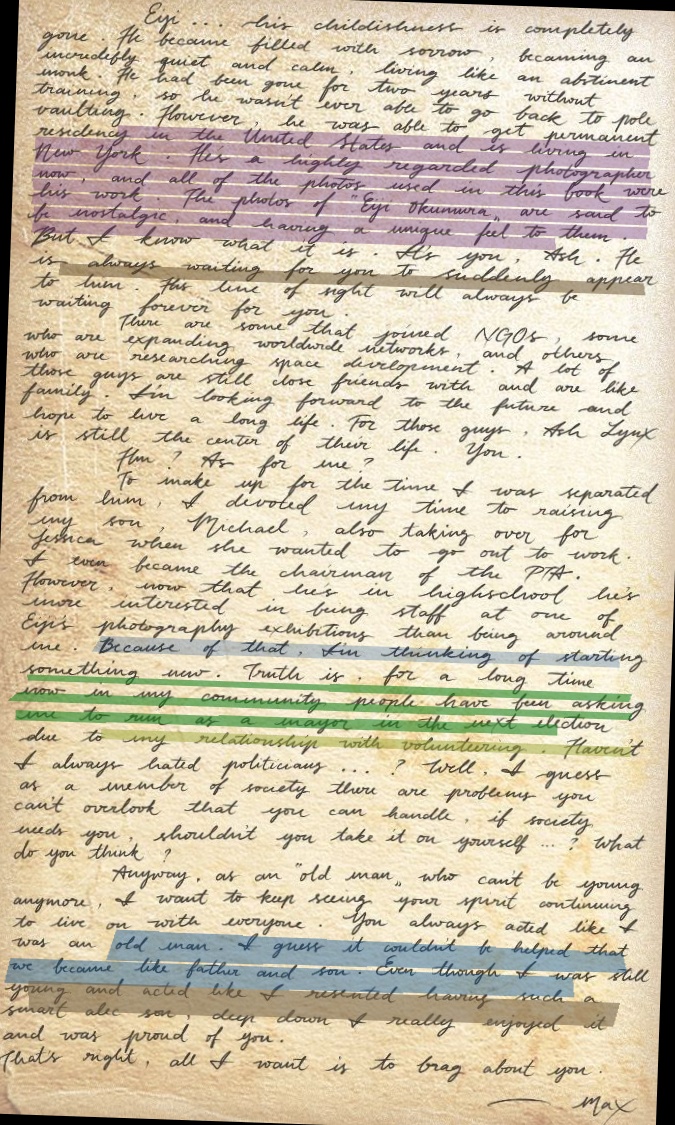 Eiji ... his childishness is completely
gone. He became filled with sorrow, becoming an
incredibly quiet and calm, living like an abstinent
monk. He had been gone for two years without
training, so he wasn't ever able to go back to pole
vaulting. However, he was able to get permanent
residency in the United States and is living in
New York. He's a highly regarded photographer
now, and all of the photos used in this book were
his work. The photos of "Eiji Okumura" are said to
be nostalgic, and having a unique feel to them.
But I know what it is. It's you, Ash. He
is always waiting for you to suddenly appear
to him. His line of sight will always be
waiting forever for you.
There are some that joined NGOs, some
who are expanding worldwide networks, and others
who are researching space development. A lot of
those guys are still close friends with and are like
family. I'm looking forward to the future and
hope to live a long life. For those guys, Ash Lynx
is still the center of their life. You.
Hm? As for me?
To make up for the time I was separated
from him, I devoted my time to raising
my son, Michael, also taking over for
Jessica when she wanted to go out to work.
I even became the chairman of the PTA.
However, now that he's in highschool he's
more interested in being staff at one of
Eiji's photography exhibitions than being around
me. Because of that, I'm thinking of starting
something new. Truth is, for a long time
now in my community people have been asking
me to run as a mayor in the next election
due to my relationship with volunteering. Haven't
I always hated politicians ...? Well, I guess
as a member of society there are problems you
can't overlook that you can handle, if society
needs you, shouldn't you take it on yourself ...? What
do you think?
Anyway, as an "old man" who can't be young
anymore, I want to keep seeing your spirit continuing
to live on with everyone. You always acted like I
was an old man. I guess it couldn't be helped that
we became like father and son. Even though I was still
young and acted like I resented having such a
smart alec son, deep down I really enjoyed it
and was proud of you.
That's right, all I want is to brag about you.
— Max